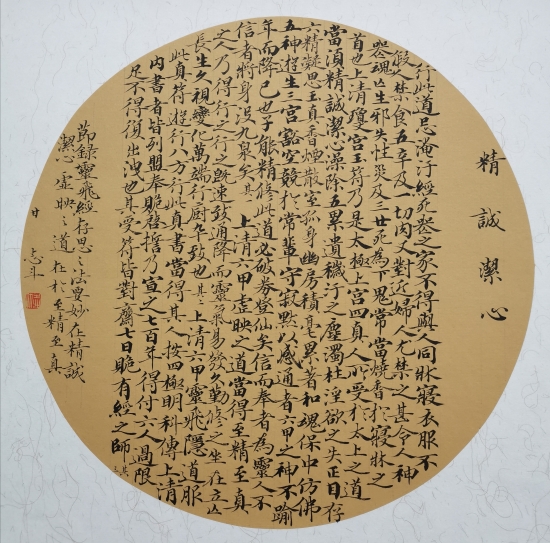 精誠潔心
行此道忌淹汙經死喪之家不得與人同牀寢衣服不
假人禁食五辛及一切肉又對近婦人尤禁之甚令人神
喪魂亡生邪失性災及三世死為下鬼常當燒香於寢牀之
首也上清瓊宮玉符乃是太極上宮四真人所受於太上之道
當須精誠潔心澡除五累遺穢汙之塵濁杜淫欲之失正目存
六精凝思玉真香煙散室孤身幽房積毫累著和魂保中仿佛
五神遊生三宮豁空競於常輩守寂默以感通者六甲之神不踰
年而降已也子能精修此道必破券登仙矣信而奉者為靈人不
信者將身沒九泉矣其一上清六甲虛映之道當得至精至真
之人乃得行之行之既速致通降而靈氣易發久勤修之坐在立亡
長生久視變化萬端行廚卒致也其二上清六甲靈飛隱道服
此真符遊行八方行此真書當得其人按四極明科傳上清
內書者皆列盟奉䞈啟誓乃宣之七百年得付六人過限
足不得復出洩也其受符皆對齋七日䞈有經之師其三
節錄靈飛經存思之法要妙在精誠
潔心虛映之道在於至精至真
甘志斗